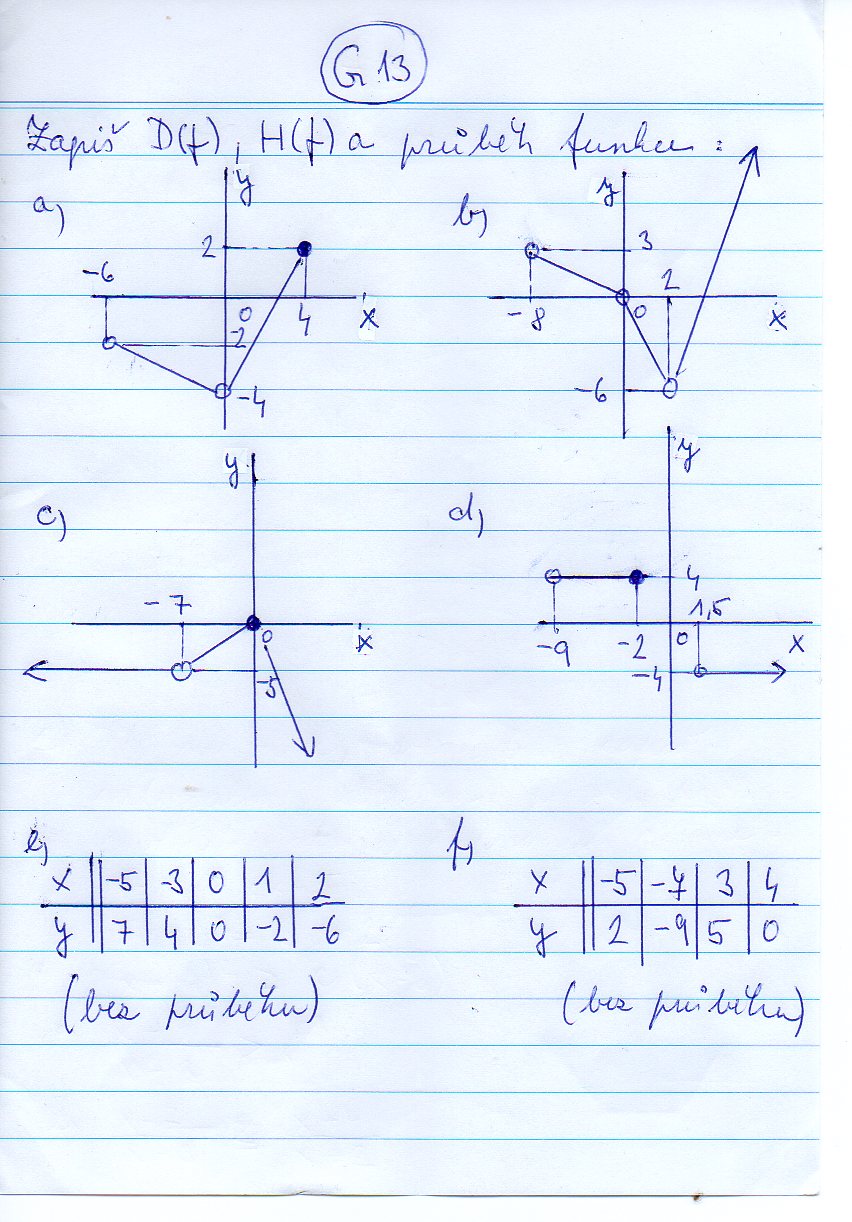 G13
Zapiš D(f), H(f) a průběh funkce:
a)
y
2
-6
0
4
x
-2
-4
b)
y
3
2
-8
0
x
-6
c)
y
-7
0
x
-5
d)
y
4
1,5
-9
-2
0
x
-4
e)
x -5 -3 0 1 2
y 7 4 0 -2 -6
(bez průběhu)
f)
x -5 -7 3 4
y 2 -9 5 0
(bez průběhu)